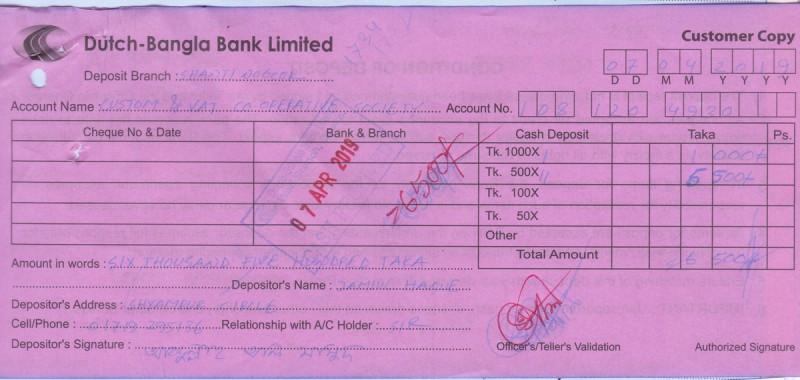 Dutch-Bangla Bank Limited
Customer Copy
07 04 2019
D D M M Y Y Y Y
Deposit Branch : SHANTI NOGOR
Account Name : CUSTOM & VAT CO OPERATIVE SOCIETY Account No. 108 120 4930
Cheque No & Date Bank & Branch Cash Deposit Taka Ps.
Tk. 1000X 1 1 000/-
Tk. 500X 11 5 500/-
Tk. 100X
Tk. 50X
Other
Total Amount 6 500/-
07 APR 2019
6500/-
Amount in words : SIX THOUSAND FIVE HUNDRED TAKA
Depositor's Name : JAMINUL HAQUE
Depositor's Address : SHYAMPUR CIRCLE
Cell/Phone : Relationship with A/C Holder :
Depositor's Signature :
Officer's/Teller's Validation Authorized Signature